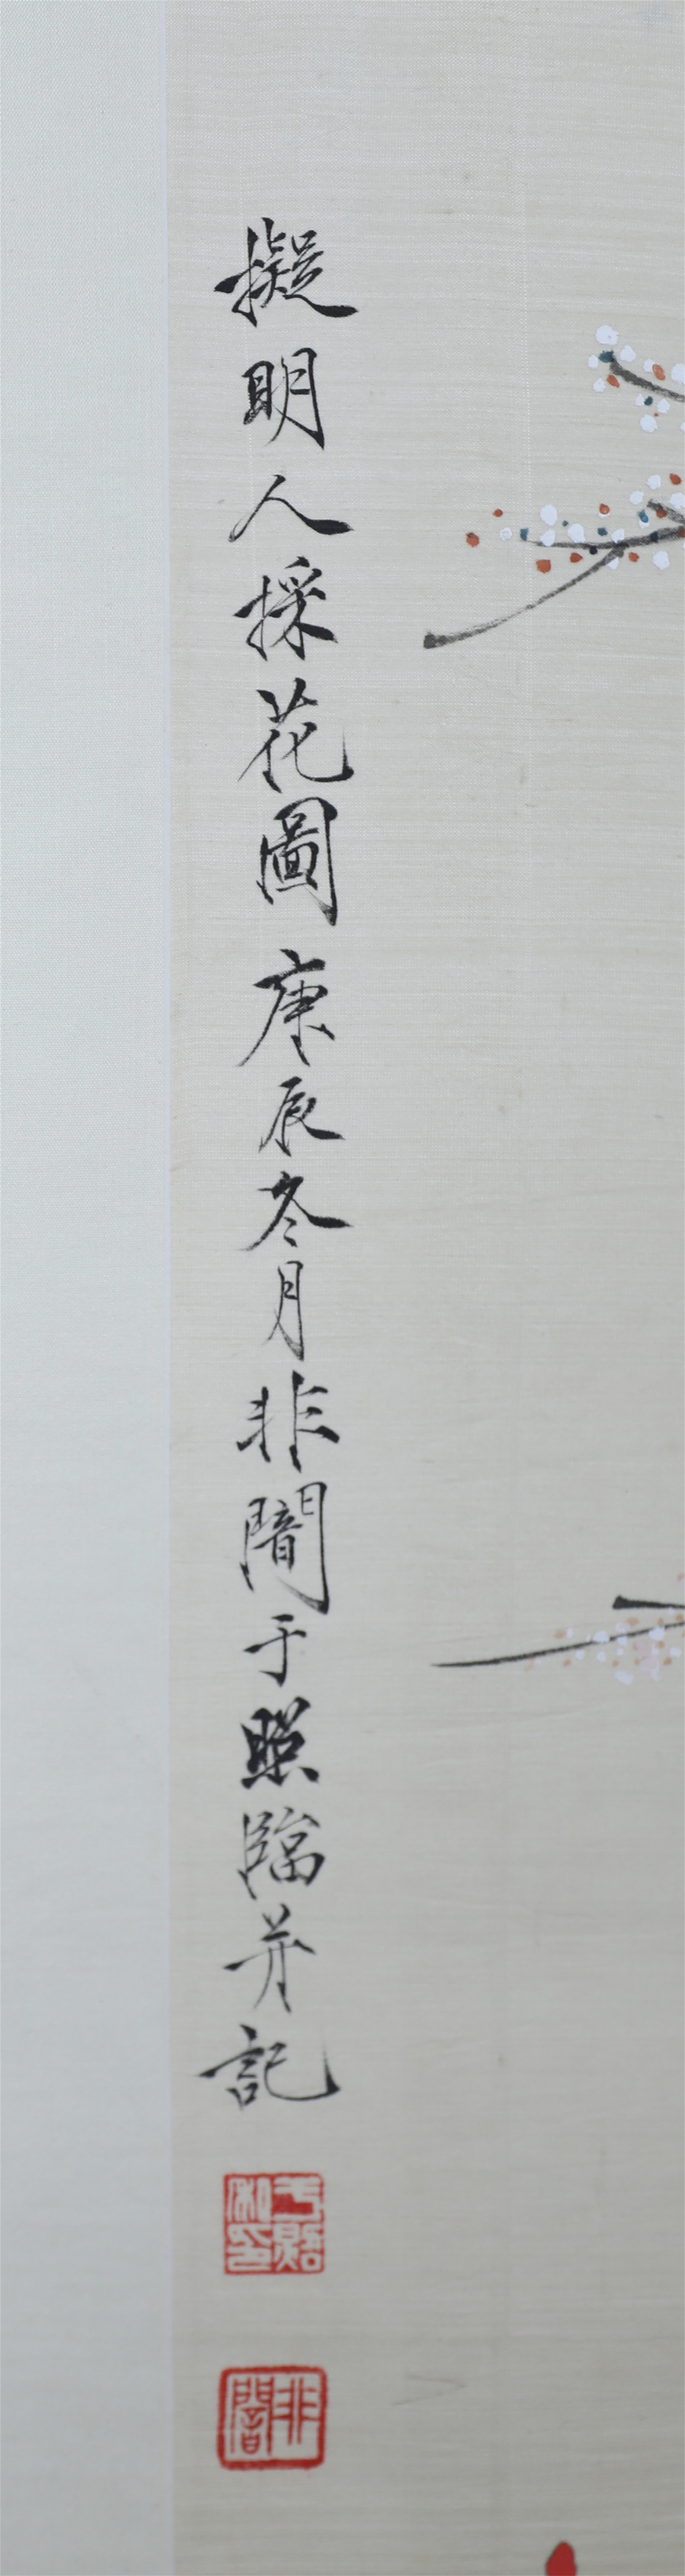 擬明人採花圖庚辰冬月非闇于照臨并記
于照私印
非闇